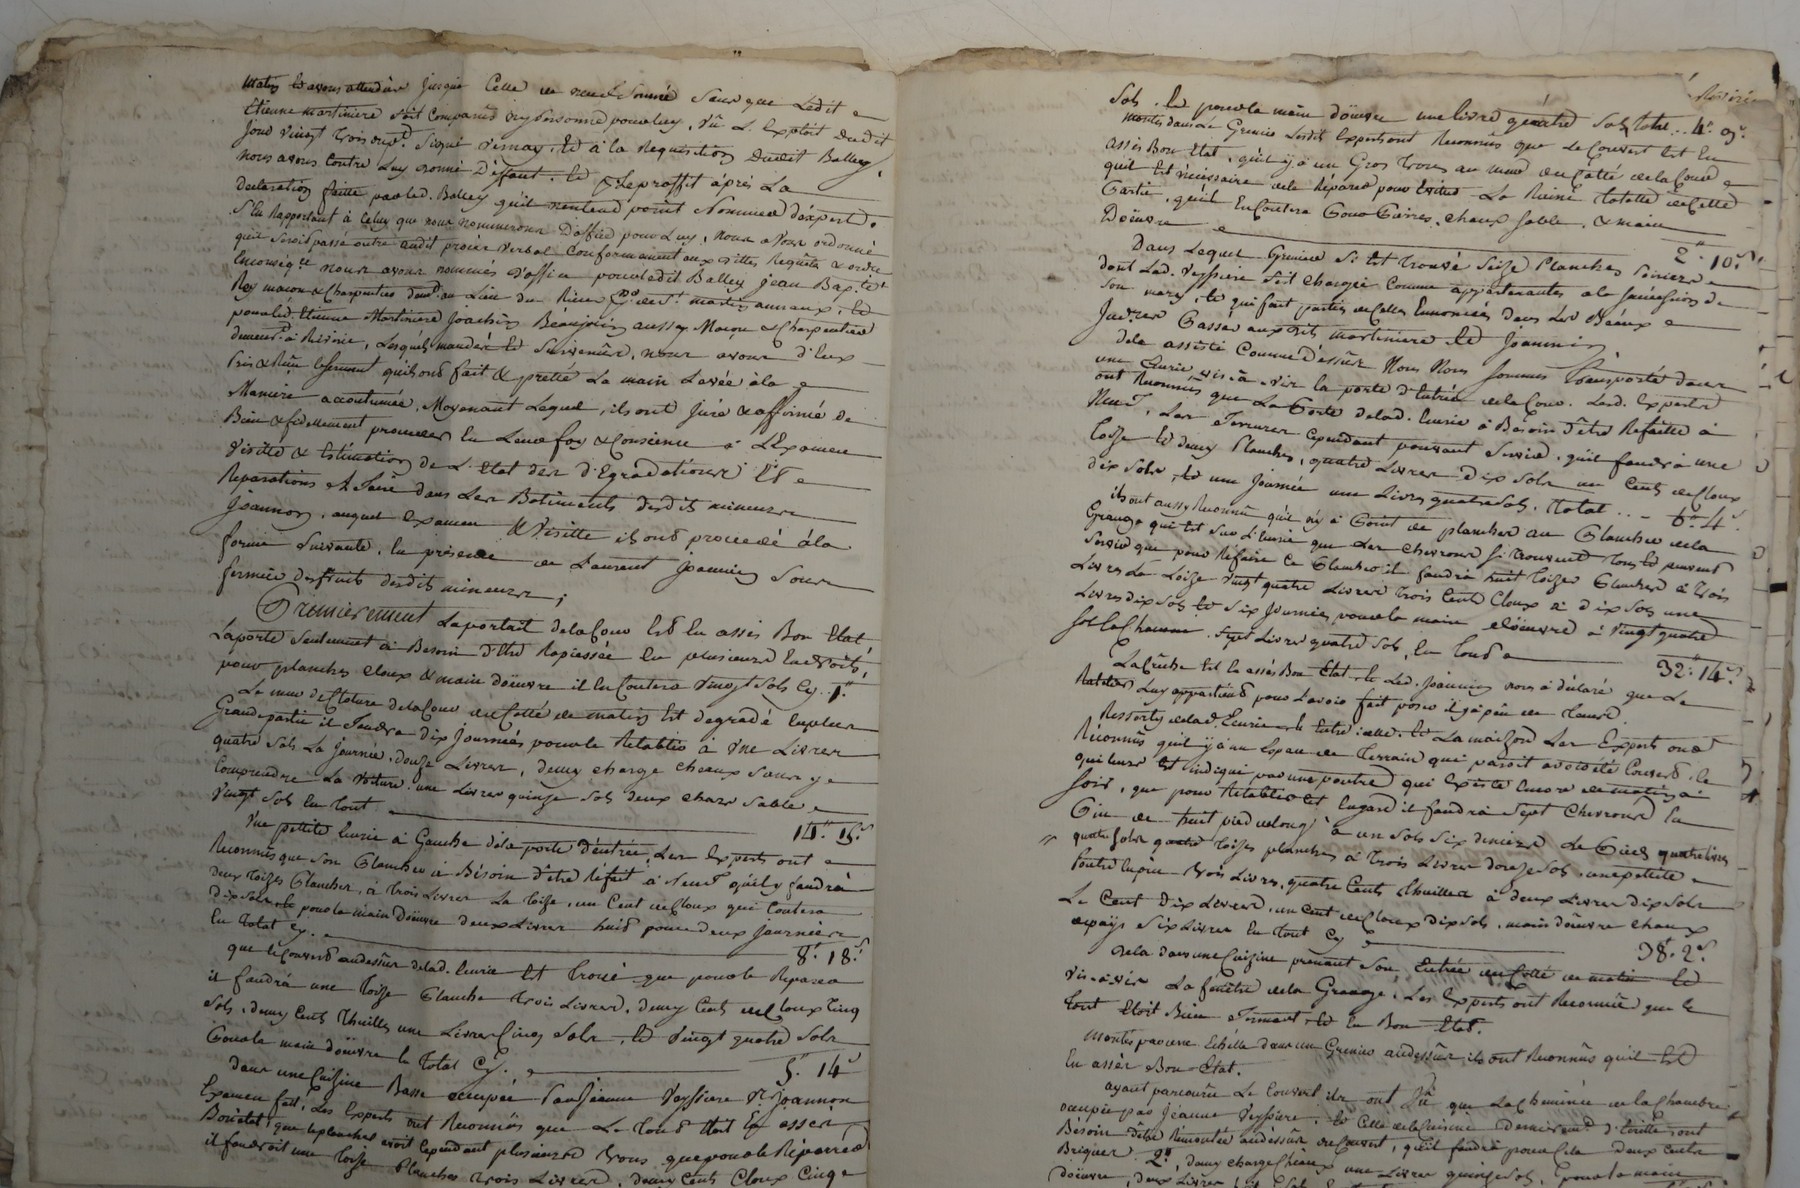 matin et avons attendu Jusque Celle de neuf Sonné Sans que Ledit
Etienne martiniere Soit Comparu ny personne pour luy, Vû L'Exploit dudit
Jour Vingt trois aud. Signé vernay, Et à la Requisition dudit Balley
nous avons Contre Luy donné Deffaut, Et pr Le proffit àprés La
declaration faitte par led. Balley qu'il n'entend point Nommer d'éxpert,
S'En Rapportant à Celuy que nous nommerons D'office pour Luy, Nous avons ordonné
qu'il Seroit passé outre audit procès Verbal Conformement aux dittes Requête & ordce
En conséqce nous avons nommés d'office pour ledit Balley jean Bapte
Rey macon & Charpentier demt. au Lieu du Rieu psse de St. martin anneaux, Et
pour led. Etienne Martiniere Joachin Béaujolin aussy Maçon & Charpentier
demeurt. à Riverie, Lesquels mandés Et Survenûs, nous avons d'Eux
Pris & Reçu leserment qu'ils ont fait & pretté La main Levée à la
Maniere accoutumée, Moyenant Lequel, ils ont Juré & affirmé de
Bien & fidellement proceder En Leurs foy & Conscience à L'Examen
Visitte & Estimation de L'Etat des d'Egradations Et
Reparations A faire dans Les Batiments desdits mineurs
Joannon, auquel Examen & Visitte ils ont procedé à la
forme Suivante, En présence de Laurent Joannin Sous
fermier des fruits desdits mineurs;
Premierement Laportail dela Cour Est En assés Bon Etat,
Laporte Seulement à Besoin d'Etre Rapiessée En plusieurs Endroits,
pour planches cloux & main doüvre il En Coutera Vingt Sols Cy . 1.#
Le mur de Cloture dela Cour du Cotté de matin Est degradé En plus
Grande partie il Faudra dix Journées pour le Retablir à Une Livre
quatre Sols La Journée, douze Livres, deux charge chaux Sans y
Comprendre La Voiture, une Livres quinze Sols deux chars Sable
Vingt Sols En tout 14.# 15.s
Une pettite Ecurie à Gauche dela porte d'éntrée, Les Experts ont
Reconnûs que Son Plancher à Bésoin d'être Réfait à Neuf qu'il y faudra
deux toizes Planches, à Trois Livres La toise, un Cent de Cloux qui Coutera
dix Sols, Et pour la main D'oüvre deux Livres huit pour deux Journées
En total Cy. 8.# 18.s
que le Couvert audessûs delad. Ecurie Est Troué que pour le Réparer
il faudrà une toise Planche trois Livres, deux Cents de Cloux Cinq
Sols, deux Cents thuilles une Livre Cinq Sols, Et Vingt quatre Sols
Pour la main d'oüvre le total Cy. 5.# 14.s
dans une Cuizine Basse occupée par Jeanne Veyssiere Ve. Joannon
Examen fait, Les Experts ont Reconnûs que Le tout Etoit En assés
Bon état, que le plancher avoit Cependant plusieurs trous que pour le Réparer
il faudroit une toise Planches trois Livres, deux Cents Cloux Cinq
Sols, Et pour la main doüvre une livre quatre Sols total .. 4.# 9.s
Montés dans Le Grenier Lesdits Experts ont Reconnûs que Le Couvert Est En
assés Bon Etat, qu'il y à un Gros Trou au mur du Cotté de la Cour
qu'il Est nécéssaire de le Réparer pour Eviter La Ruine totalle de Cette
Partie, qu'il En Coutera Pour Pierres, chaux Sable, & main
Doüvre 2.# 10.s
Dans Lequel Grenier Si Est trouvé Seize Planches
dont Lad. Veyssiere S'est chargée Comme appartenantes à la Succession de
Son mary, Et qui fait partie de Celles Ennoncées dans Les Béaux
Jadres Passés aux dits martiniere Et Joannin,
dela assisté Comme D'éssûs Nous Nous Sommes transporté dans
une Ecurie vis-à-vis la porte d'Entrée de la Cour. Lesd. Experts
ont Reconnûs que La Porte delad. Ecurie à Besoin d'Etre Refaitte à
Neuf, Les Ferrures Cépendant pouvant Servir, qu'il faudra une
toise Et demy Planches, quatre Livres Dix Sols un Cent de Cloux
dix Sols, Et une Journée une Livre quatre Sols. Total .. 6.# 4.s
ils ont aussy Reconnû qu'il n'y à Point de plancher au Plancher de la
Grange qui Est Sur L'Ecurie que Les chevrons Si trouvent Tous Et peuvent
Servir que pour Refaire Ce Plancher il faudra huit toizes Planches à trois
Livres La toize Vingt quatre Livres Trois Cents Cloux à dix Sols une
Livres dix Sols Et Six Journées pour la main d'oüvre à Vingt quatre
Sol la Chacune, Sept Livres quatre Sols, En tout 32.# 14.s
La Créche Est En assés Bon Etat, Et Led. Joannin nous à déclaré que Le
Ratelier Luy appartient pour L'avoir fait poser il y à peu de Temps.
Ressortis delad. Ecurie, & Entre icelle, Et La maizon Les Experts ont
Réconnûs qu'il y à un Espace de Terrain qui paroit avoir été Couvert, Ce
qui leurs Est indiqué par une poutre qui Existe Encore de matin à
Soir, que pour Rétablir Cet Engard il faudra Sept Chevrons En
Pin de huit pied de long, à un Sols Six deniers Le Pied, quatre Livres
quatre Sols quatre toizes planches à trois Livres douze Sols, une pettite
Poutre En pin trois Livres, quatre Cents thuilles à deux Livres Dix Sols
Le Cent Dix Livres, un Cent de Cloux dix Sols, main doüvre chaux
du pays Six Livres En tout Cy 38.# 2.s
Dela dans une Cuizine prenant Son Entrée du Cotté de matin Et
vis-à-vis La fenêtre de la Grange, Les Experts ont Reconnûs que le
tout Etoit Bien Fermant, Et En Bon Etat.
Montés par une Echelle dans un Grenier audessûs ils ont Reconnûs qu'il Est
En assés Bon Etat.
ayant parcourûs Le Couvert ils ont Vû que La Cheminée de la Chambre
occupée par Jeanne Veyssiere, Et Celle de la Cuisine
Bésoin d'être Remontée audessûs du Couvert, qu'il faudra pour Cela deux Cents
Briques 2.#, deux charge Chaux une Livre quinze Sols, & pour la main
doüvre, deux Livres